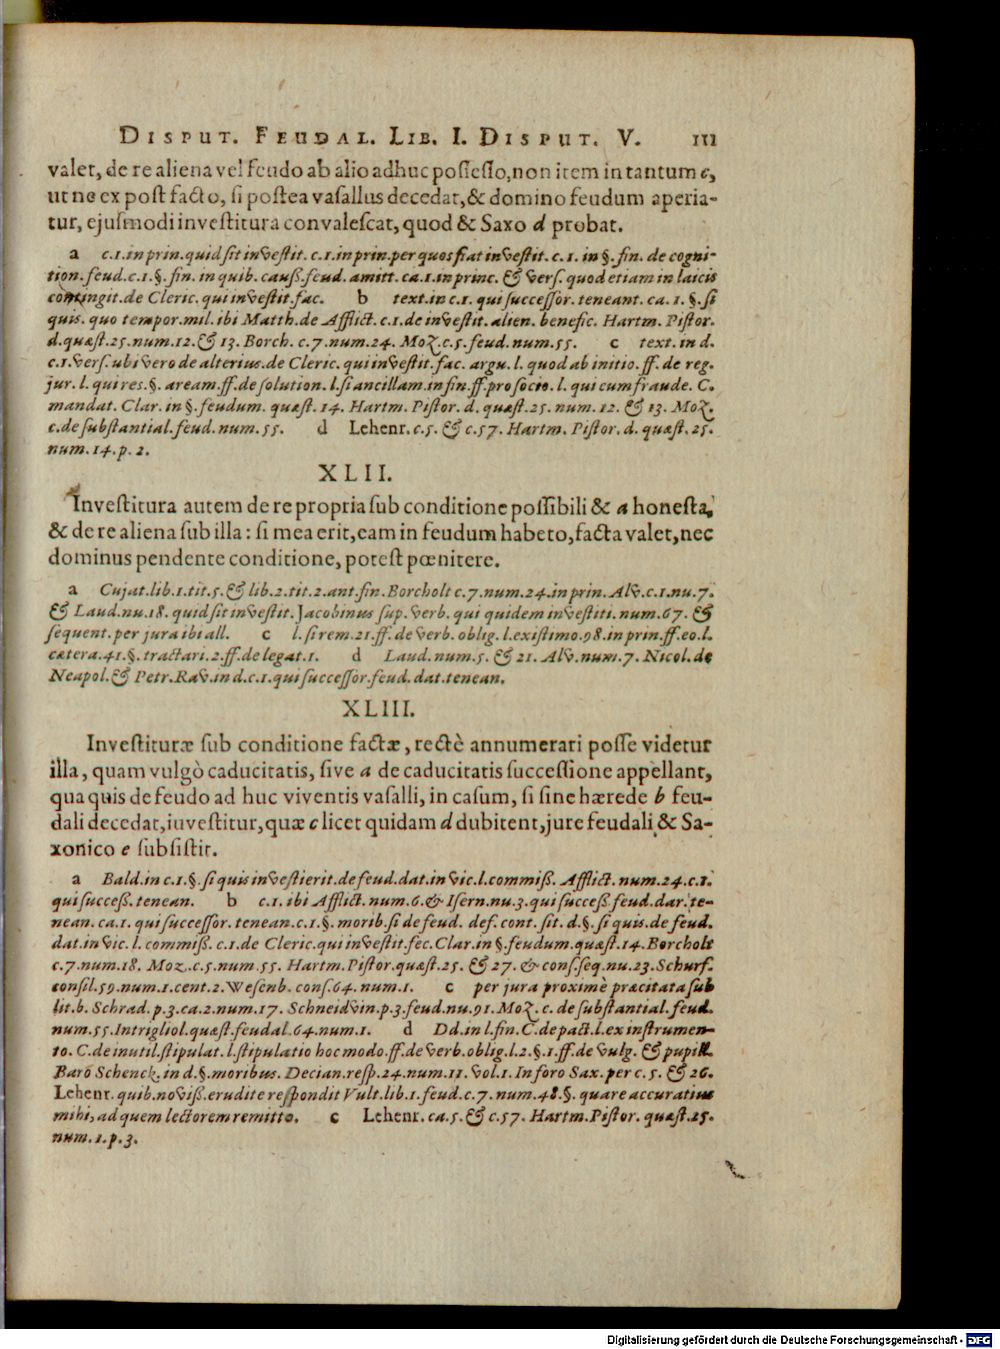 DISPUT. FEUDAL. LIB. I. DISPUT. V. 111
valet, de re aliena vel feudo ab alio adhuc possesso, non item in tantum c,
ut ne ex post facto, si postea vasallus decedat, & domino feudum aperia-
tur, ejusmodi investitura convalescat, quod & Saxo d probat.
a c.1. in prin. quid sit invest. c.1. in prin. per quos fiat invest. c. 1. in §. fin. de cogni-
tion. feud. c.1. §. fin. in quib. cauß. feud. amitt. ca.1. in princ. & vers. quod etiam in laicis
contingit. de Cleric. qui invest. fac. b text. in c.1. qui successor. teneant. ca. 1. §. si
quis. quo tempor. mil. ibi Matth. de Afflict. c.1. de invest. alien. benefic. Hartm. Pistor.
d. quæst. 25. num. 12. & 13. Borch. c. 7. num. 24. Moz. c. 5. feud. num. 55. c text. in d.
c.1. vers. ubi vero de alterius. de Cleric. qui invest. fac. argu. l. quod ab initio. ff. de reg.
jur. l. qui res. §. aream. ff. de solution. l. si ancillam. in fin. ff. pro socio. l. qui cum fraude. C.
mandat. Clar. in §. feudum. quæst. 14. Hartm. Pistor. d. quæst. 25. num. 12. & 13. Moz.
c. de substantial. feud. num. 55. d Lehenr. c. 5. & c. 57. Hartm. Pistor. d. quæst. 25.
num. 14. p. 2.
XLII.
Investitura autem de re propria sub conditione possibili & a honesta,
& de re aliena sub illa: si mea erit, eam in feudum habeto, facta valet, nec
dominus pendente conditione, potest pœnitere.
a Cujat. lib. 1. tit. 5. & lib. 2. tit. 2. ant. fin. Borcholt c. 7. num. 24. in prin. Alv. c. 1. nu. 7.
& Laud. nu. 18. quid sit invest. Jacobinus sup. verb. qui quidem investiti. num. 67. &
sequent. per jura ibi all. c l. si rem. 21. ff. de verb. oblig. l. existimo. 98. in prin. ff. eo. l.
cætera. 41. §. tractari. 2. ff. de legat. 1. d Laud. num. 5. & 21. Alv. num. 7. Nicol. de
Neapol. & Petr. Rav. in d. c. 1. qui successor. feud. dat. tenean.
XLIII.
Investituræ sub conditione factæ, rectè annumerari posse videtur
illa, quam vulgò caducitatis, sive a de caducitatis successione appellant,
qua quis de feudo ad huc viventis vasalli, in casum, si sine hærede b feu-
dali decedat, iuvestitur, quæ c licet quidam d dubitent, jure feudali & Sa-
xonico e subsistit.
a Bald. in c. 1. §. si quis investierit. de feud. dat. in vic. l. commiß. Afflict. num. 24. c. 1.
qui succeß. tenean. b c. 1. ibi Afflict. num. 6. & Isern. nu. 3. qui succeß. feud. dar. te-
nean. ca. 1. qui successor. tenean. c. 1. §. morib. si de feud. def. cont. sit. d. §. si quis. de feud.
dat. in vic. l. commiß. c. 1. de Cleric. qui invest. fec. Clar. in §. feudum. quæst. 14. Borcholt
c. 7. num. 18. Moz. c. 5. num. 55. Hartm. Pistor. quæst. 25. & 27. & cons. seq. nu. 23. Schurf.
consil. 59. num. 1. cent. 2. Wesenb. cons. 64. num. 1. c per jura proximè præcitata sub
lit. b. Schrad. p. 3. ca. 2. num. 17. Schneidvin. p. 3. feud. nu. 91. Moz. c. de substantial. feud.
num. 55. Intrigliol. quæst. feudal. 64. num. 1. d Dd. in l. fin. C. de pact. l. ex instrumen-
to. C. de inutil. stipulat. l. stipulatio hoc modo. ff. de verb. oblig. l. 2. §. 1. ff. de vulg. & pupill.
Baro Schenck. in d. §. moribus. Decian. resp. 24. num. 11. vol. 1. In foro Sax. per c. 5. & 26.
Lehenr. quib. noviß. erudite respondit Vult. lib. 1. feud. c. 7. num. 48. §. quare accuratius
mihi, ad quem lectorem remitto. c Lehenr. ca. 5. & c. 57. Hartm. Pistor. quæst. 25.
num. 1. p. 3.
Digitalisierung gefördert durch die Deutsche Forschungsgemeinschaft - DFG